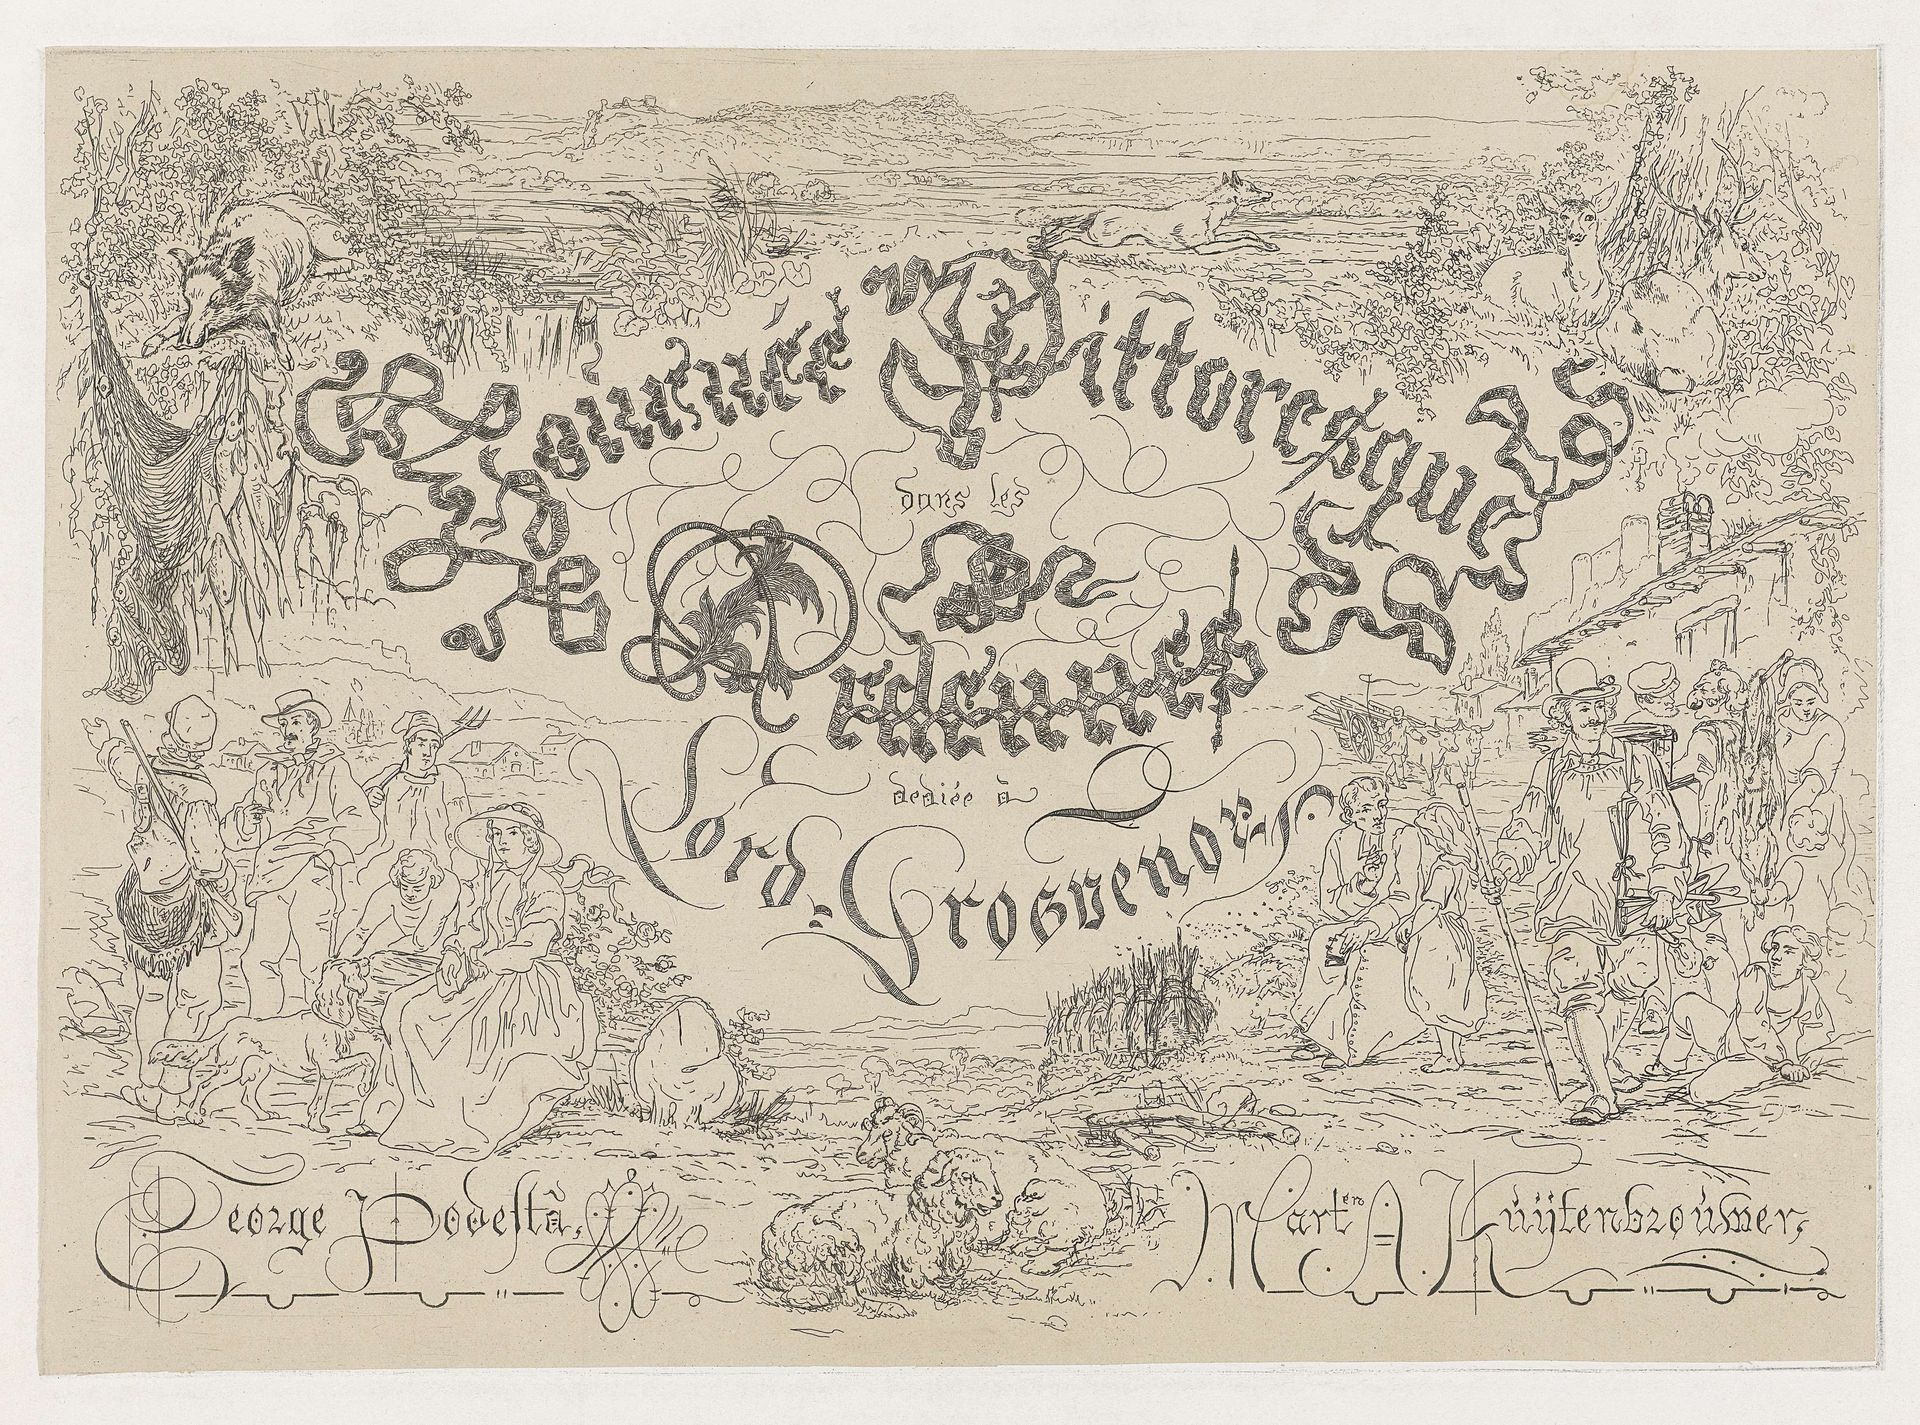 Tournée Pittoresque
dans les
Ardennes
dediée à
Lord Grosvenor
George Podestà, Mart en A Kuÿtenbroůwer,